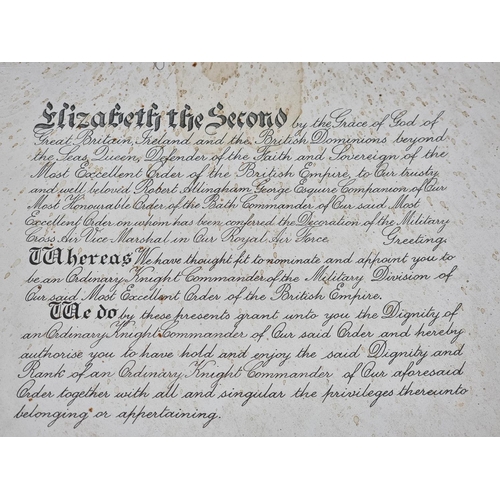 Elizabeth the Second by the Grace of God of
Great Britain, Ireland and the British Dominions beyond
the Seas, Queen, Defender of the Faith and Sovereign of the
Most Excellent Order of the British Empire, to Our trusty
and well beloved Robert Allingham George Esquire Companion of Our
Most Honourable Order of the Bath Commander of Our said Most
Excellent Order on whom has been conferred the Decoration of the Military
Cross Air Vice-Marshal in Our Royal Air Force Greeting.
Whereas We have thought fit to nominate and appoint you to
be an Ordinary Knight Commander of the Military Division of
Our said Most Excellent Order of the British Empire.
We do by these presents grant unto you the Dignity of
an Ordinary Knight Commander of Our said Order and hereby
authorise you to have hold and enjoy the said Dignity and
Rank of an Ordinary Knight Commander of Our aforesaid
Order together with all and singular the privileges thereunto
belonging or appertaining.